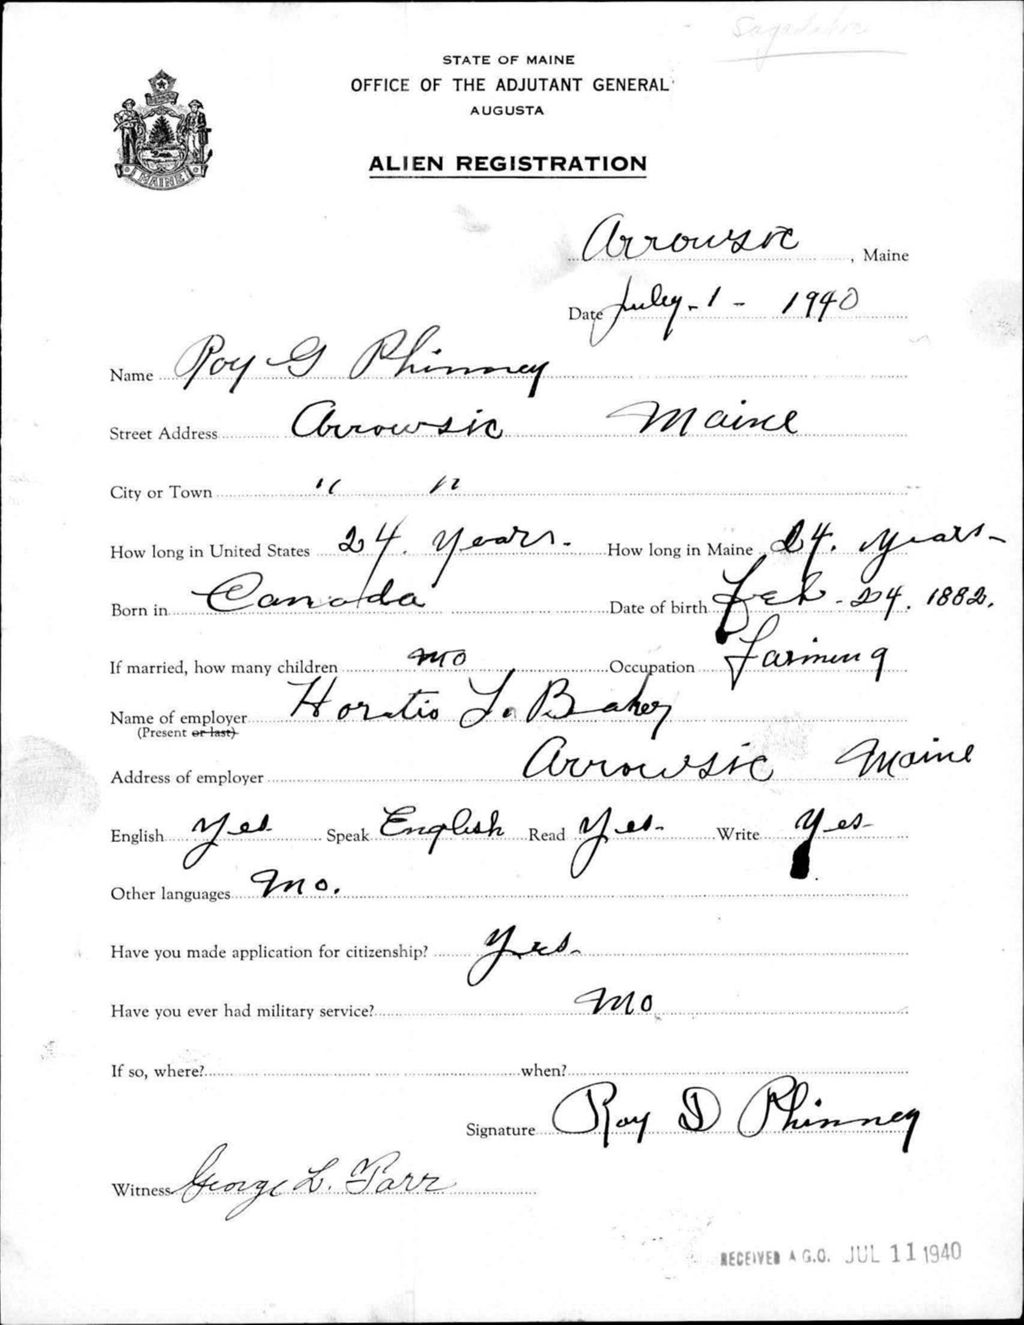 STATE OF MAINE
OFFICE OF THE ADJUTANT GENERAL
AUGUSTA
MAINE
ALIEN REGISTRATION
Arrowsic, Maine
Date July-1- 1940
Name Roy G Phinney
Street Address Arrowsic Maine
City or Town " "
How long in United States 24. years. How long in Maine 24. years
Born in Canada Date of birth Feb-24. 1882.
If married, how many children no Occupation Farming
Name of employer Horatio L. Baker
(Present or last)
Address of employer Arrowsic Maine
English Yes Speak English Read Yes Write Yes
Other languages No.
Have you made application for citizenship? Yes
Have you ever had military service? No
If so, where? when?
Signature Roy D Phinney
Witness George L. Tarr
RECEIVED A.G.O. JUL 11 1940